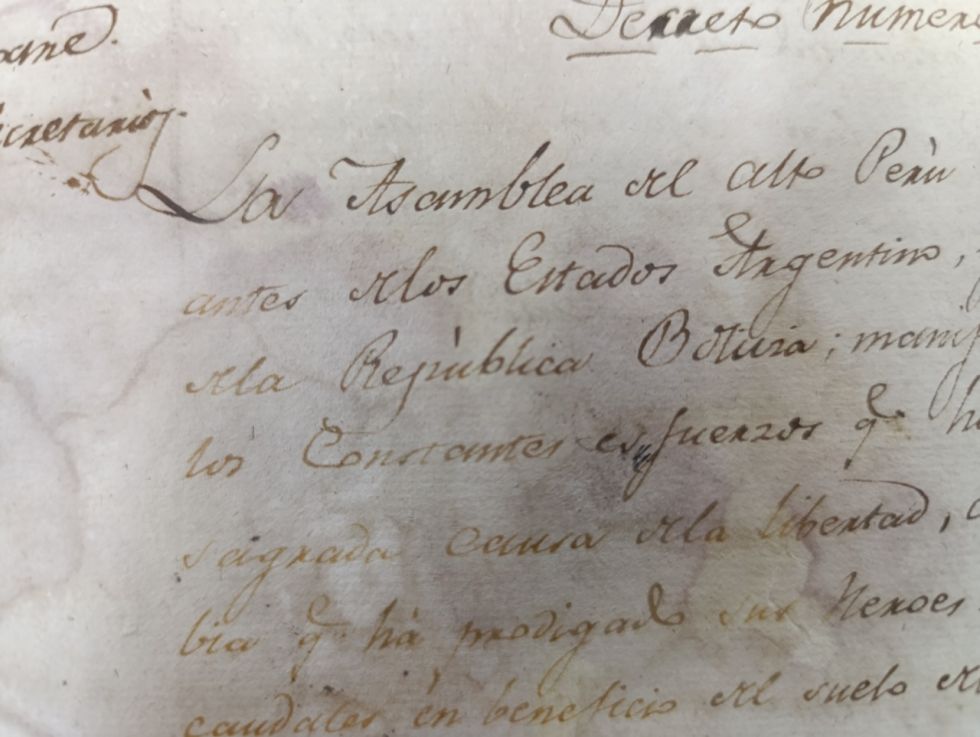 Decreto Numero
cretarios.
La Asamblea del alto Perú
antes delos Estados Argentino,
dela República Bolivia; manif
los Constantes esfuerzos q.e ha
sagrada causa dela libertad, 
bia q.e há prodigado sus Heroes
caudales én beneficio del suelo de